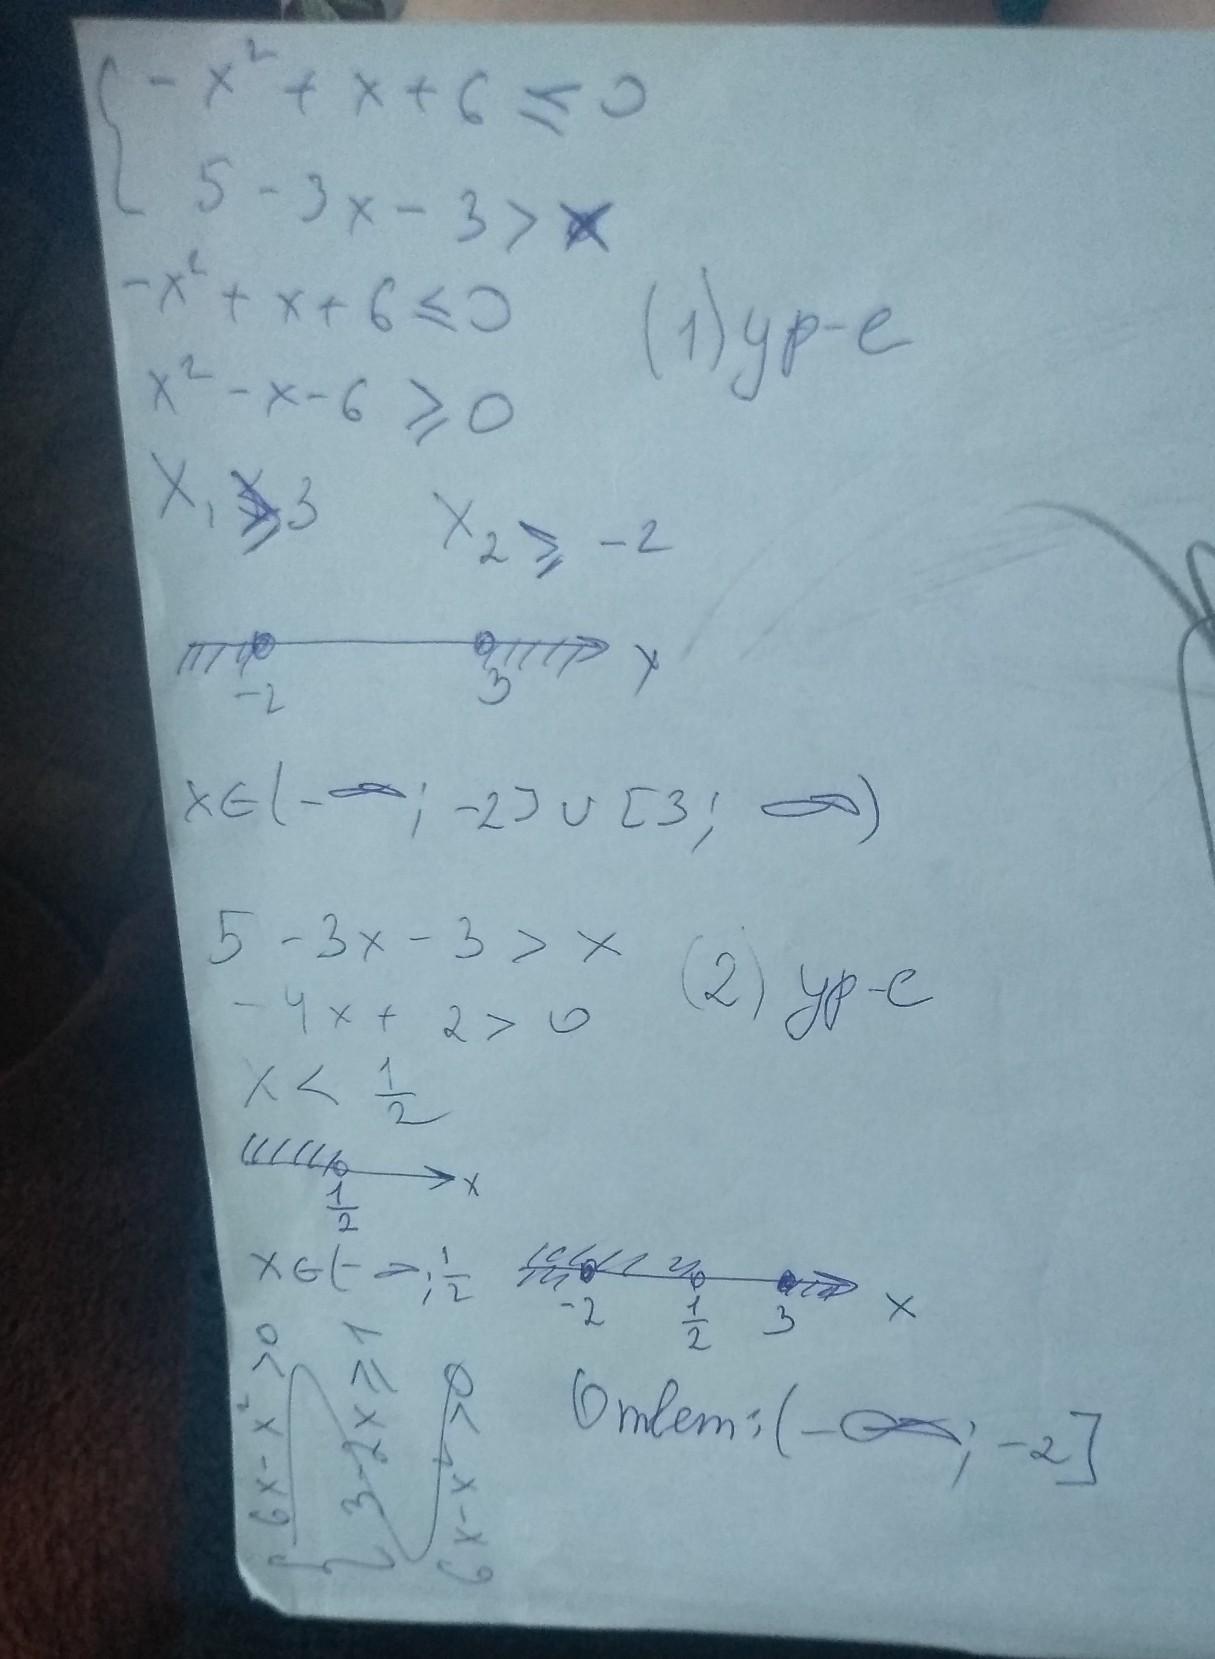 { -x² + x + 6 ⩽ 0
5 - 3x - 3 > x
-x² + x + 6 ⩽ 0 (1) ур-е
x² - x - 6 ⩾ 0
x₁ ⩾ 3 x₂ ⩾ -2
-2 3 x
x ∈ (-∞; -2] ∪ [3; ∞)
5 - 3x - 3 > x (2) ур-е
-4x + 2 > 0
x < 1/2
1/2 x
x ∈ (-∞; 1/2
-2 1/2 3 x
Ответ: (-∞; -2]
{ 6x - x² > 0
{ 3 - 2x ⩾ 1
6x - x > 0